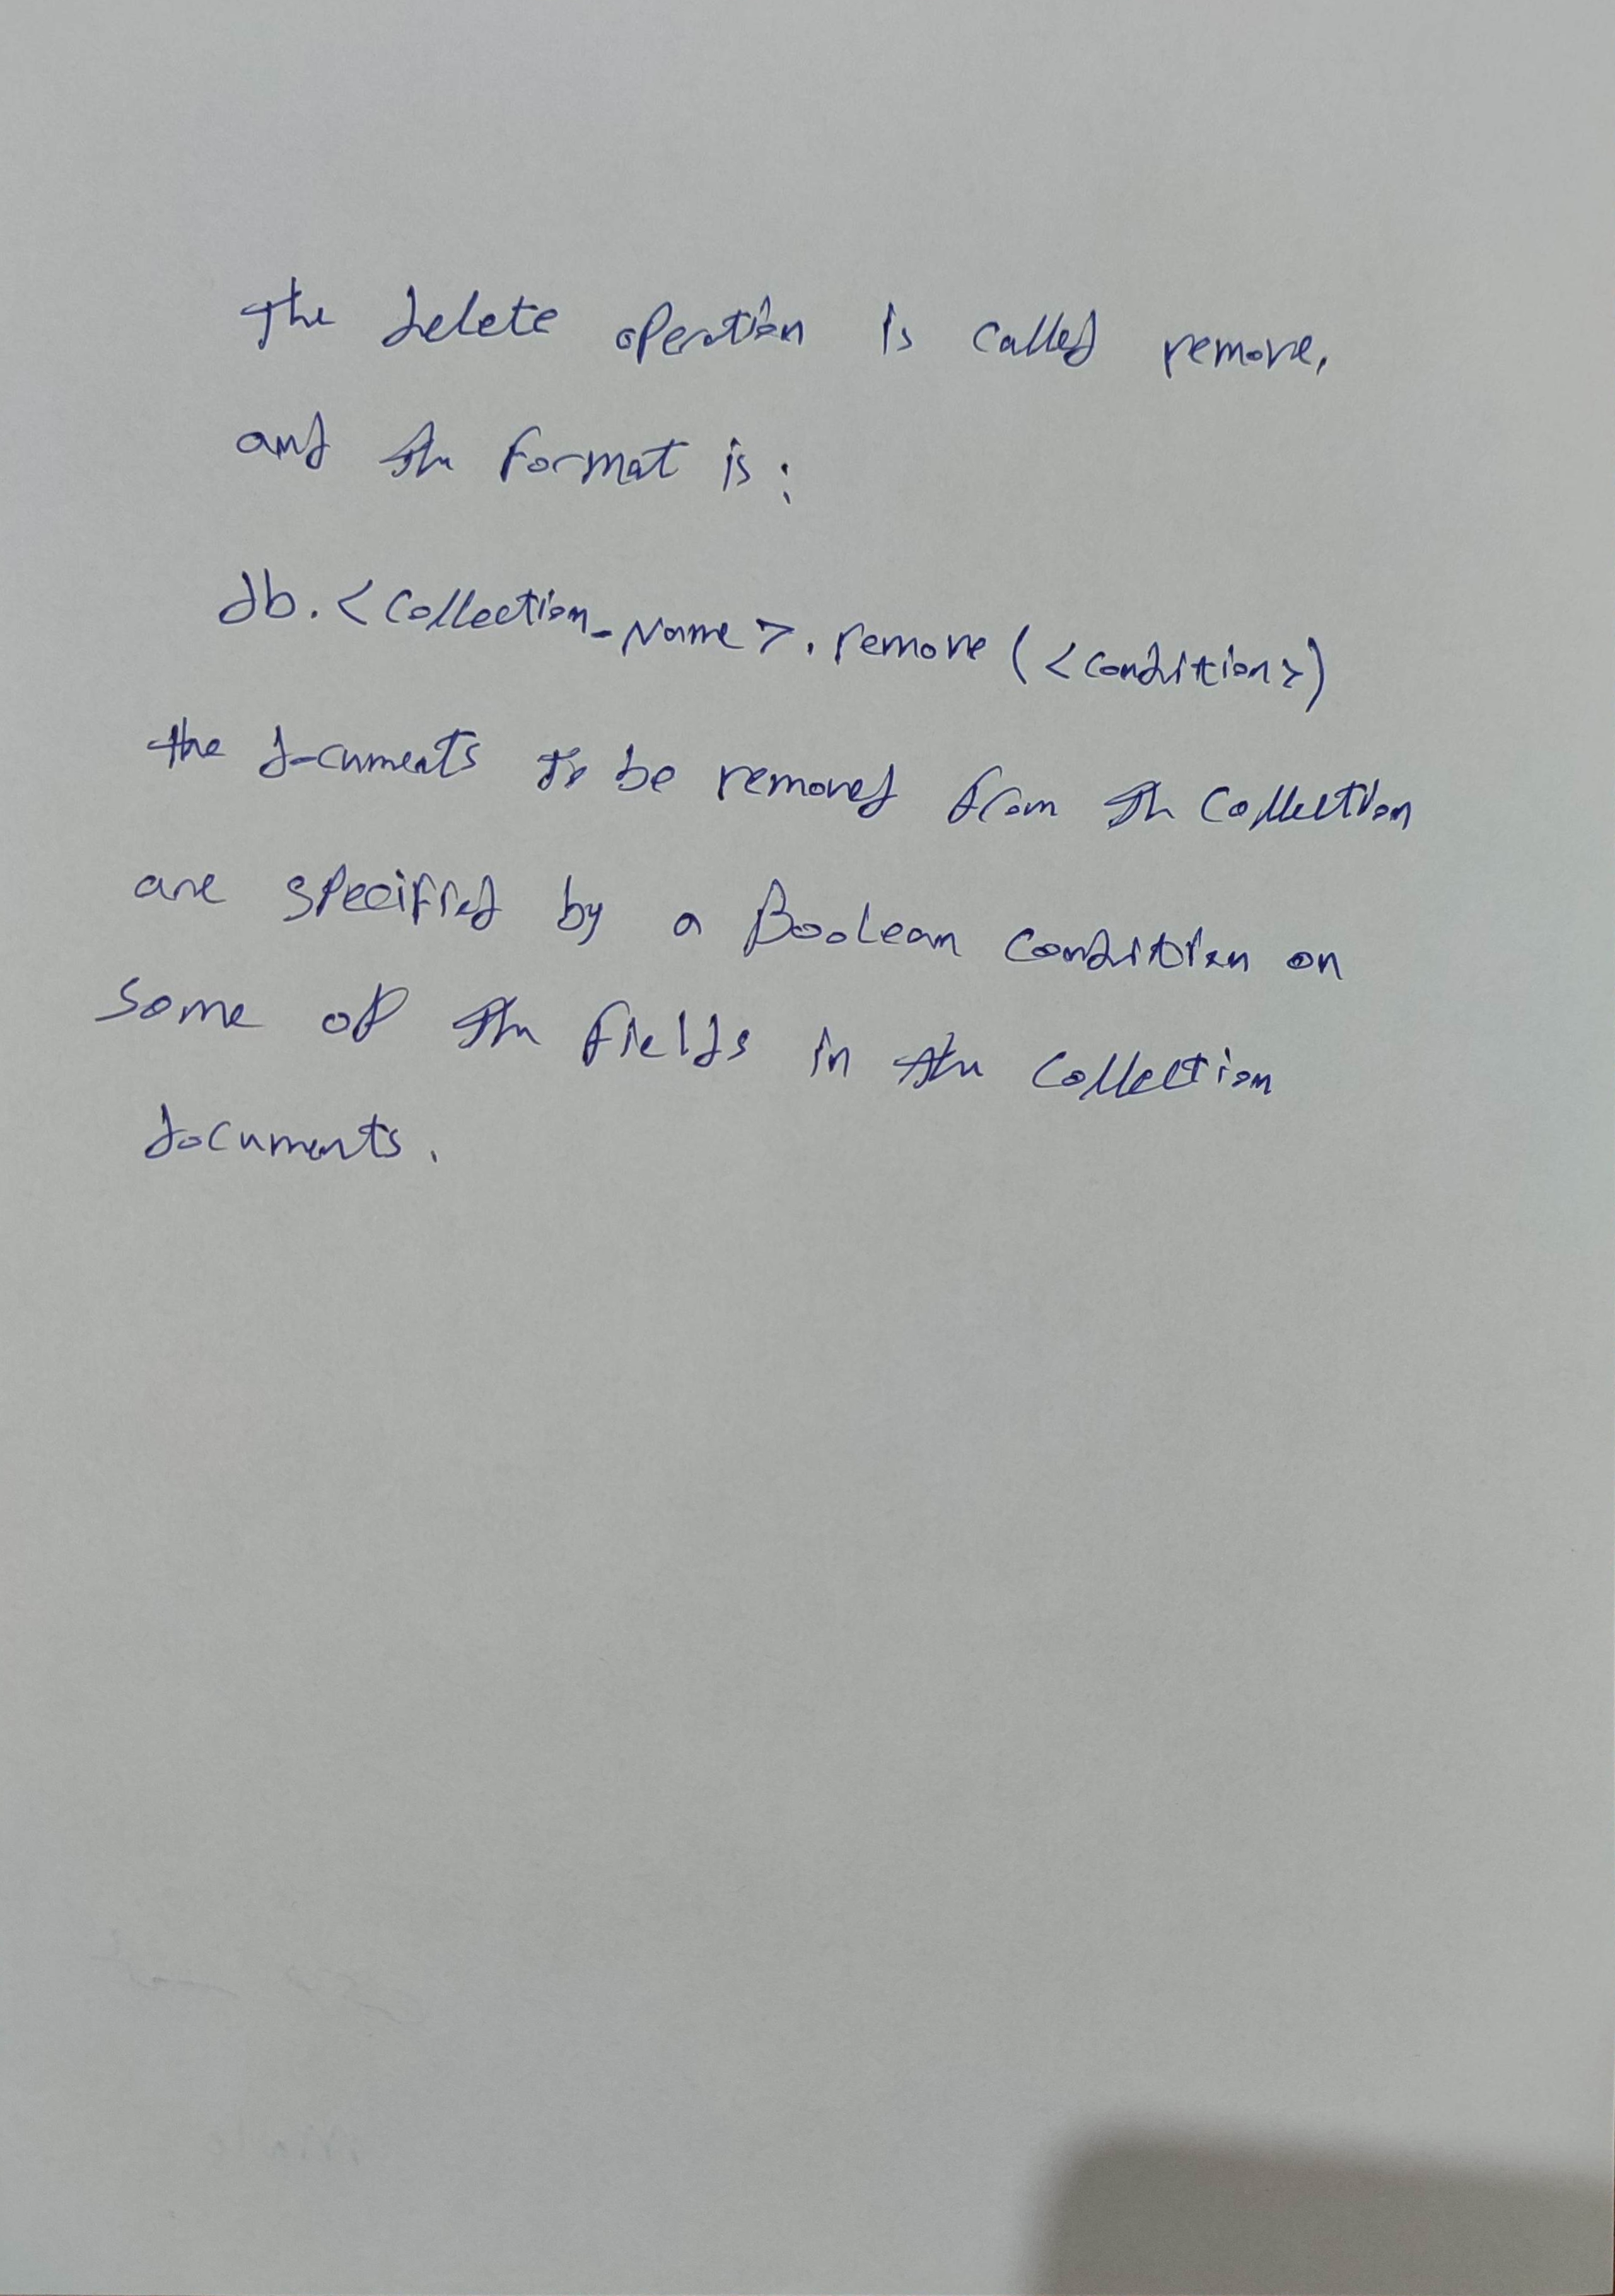 The delete operation is called remove,
and the format is:
db.<collection_name>.remove(<condition>)
the documents to be removed from the collection
are specified by a Boolean condition on
some of the fields in the collection
documents.